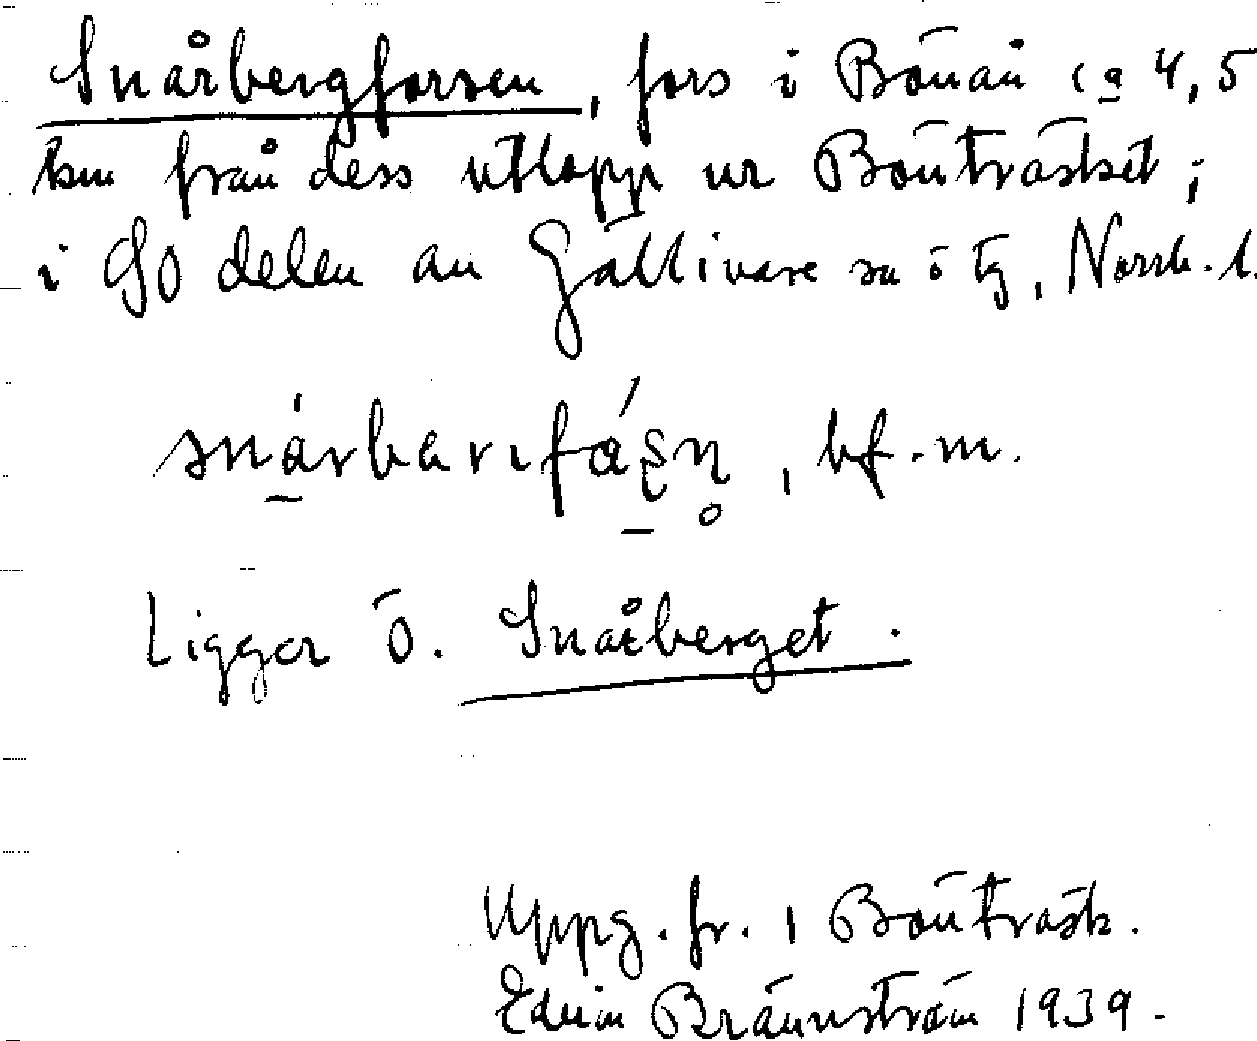 Snårbergforsen, fors i Bönån ca 4,5
km från dess utlopp ur Bönträsket;
i SO delen av Gällivare sn ö tg, Norrb. l.
snárbarıfáʂn̥, bf. m.
Ligger Ö. Snårberget.
Uppg. fr. i Bönträsk.
Edvin Brännström 1939.